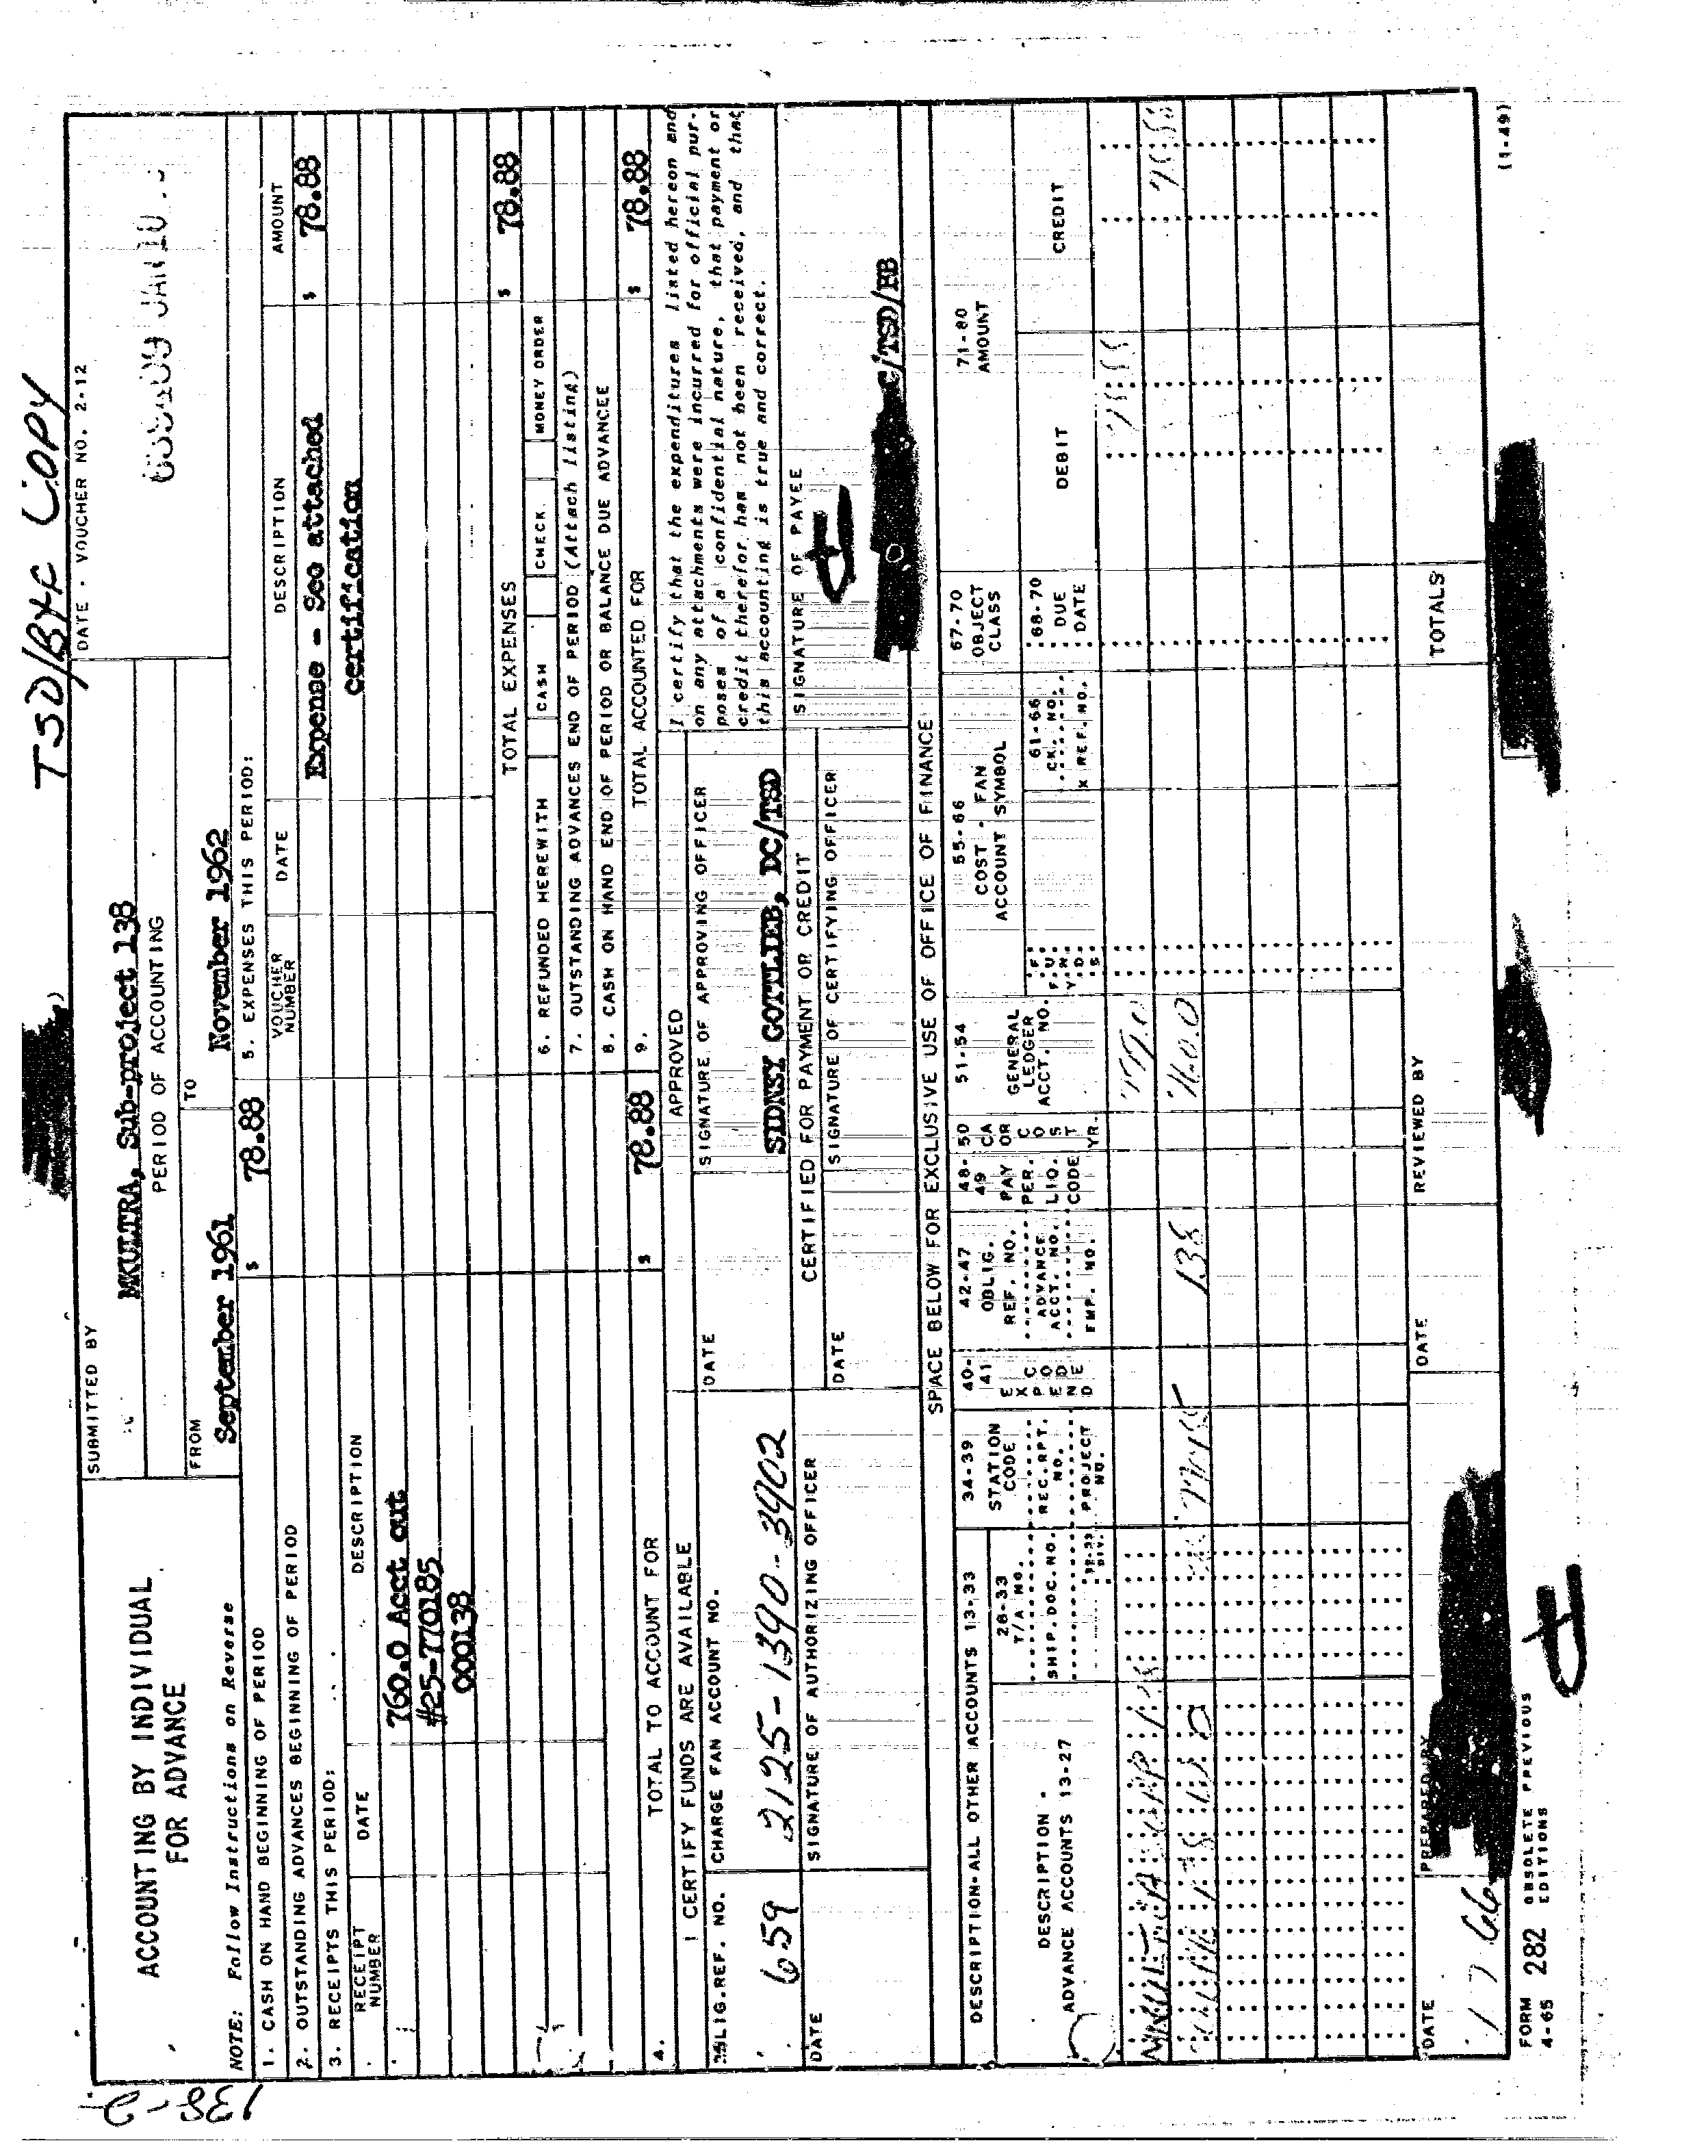 138-2
TSD/BYF COPY
ACCOUNTING BY INDIVIDUAL
FOR ADVANCE
SUBMITTED BY
MKULTRA, Sub-project 138
PERIOD OF ACCOUNTING
FROM
September 1961
TO
November 1962
DATE - VOUCHER NO. 2-12
JAN 10
NOTE: Follow Instructions on Reverse
1. CASH ON HAND BEGINNING OF PERIOD
$ 78.88
2. OUTSTANDING ADVANCES BEGINNING OF PERIOD
3. RECEIPTS THIS PERIOD:
RECEIPT NUMBER
DATE
DESCRIPTION
760.0 Acct out
#25-770185
000138
4. TOTAL TO ACCOUNT FOR $ 78.88
5. EXPENSES THIS PERIOD:
VOUCHER NUMBER
DATE
DESCRIPTION
AMOUNT
Expense - See attached $ 78.88
certification
TOTAL EXPENSES $ 78.88
6. REFUNDED HEREWITH CASH CHECK MONEY ORDER
7. OUTSTANDING ADVANCES END OF PERIOD (Attach listing)
8. CASH ON HAND END OF PERIOD OR BALANCE DUE ADVANCEE
9. TOTAL ACCOUNTED FOR $ 78.88
I CERTIFY FUNDS ARE AVAILABLE
OBLIG.REF. NO.
659
CHARGE FAN ACCOUNT NO.
2125-1390-3902
DATE
SIGNATURE OF AUTHORIZING OFFICER
APPROVED
DATE
SIGNATURE OF APPROVING OFFICER
SIDNEY GOTTLIEB, DC/TSD
CERTIFIED FOR PAYMENT OR CREDIT
DATE
SIGNATURE OF CERTIFYING OFFICER
I certify that the expenditures listed hereon and
on any attachments were incurred for official pur-
poses of a confidential nature, that payment or
credit therefor has not been received, and that
this accounting is true and correct.
SIGNATURE OF PAYEE
C/TSD/BB
SPACE BELOW FOR EXCLUSIVE USE OF OFFICE OF FINANCE
DESCRIPTION-ALL OTHER ACCOUNTS 13-33
DESCRIPTION -
ADVANCE ACCOUNTS 13-27
28-33
T/A NO.
SHIP.DOC.NO.
32-33
DIV.
34-39
STATION
CODE
REC.RPT.
NO.
PROJECT
NO.
40-
41
EXPEND
CODE
42-47
OBLIG.
REF. NO.
ADVANCE
ACCT. NO.
EMP. NO.
48-50
49 CA
PAY OR
PER.
LIQ.
CODE
COST
YR.
51-54
GENERAL
LEDGER
ACCT. NO.
55-66
COST - FAN
ACCOUNT SYMBOL
F.Y.
FUNDS
61-66
CK. NO.
X REF. NO.
67-70
OBJECT
CLASS
68-70
DUE
DATE
71-80
AMOUNT
DEBIT
CREDIT
138
760.0
DATE
1 7 66
PREPARED BY
DATE
REVIEWED BY
TOTALS
FORM
4-65
282
OBSOLETE PREVIOUS
EDITIONS
(1-49)